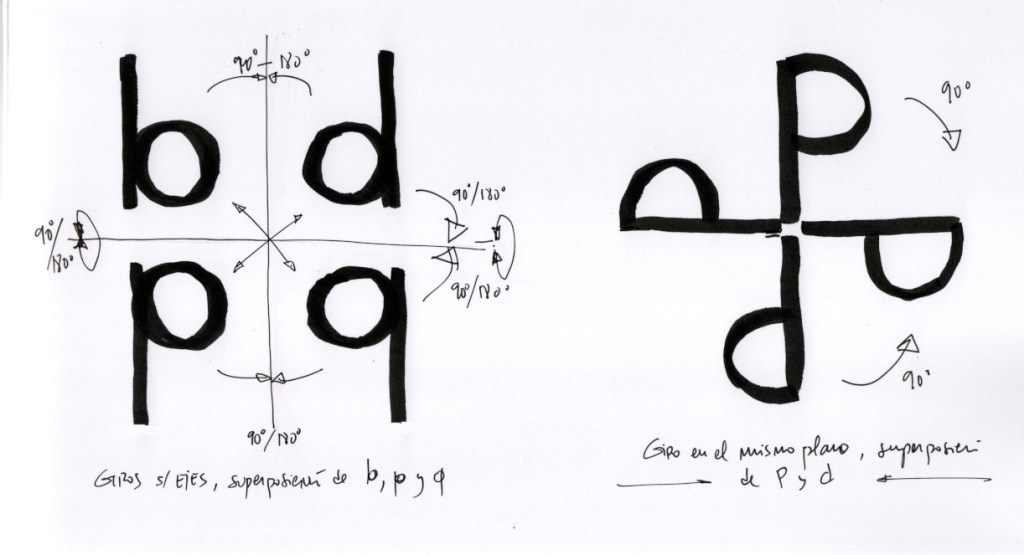 90° – 180°
b d
90°/180°
90°/180°
p q
90°/180°
90°/180°
GIROS s/EJES, superposición de b, p y q
P
90°
90°
d
Giro en el mismo plano, superposición
de P y d